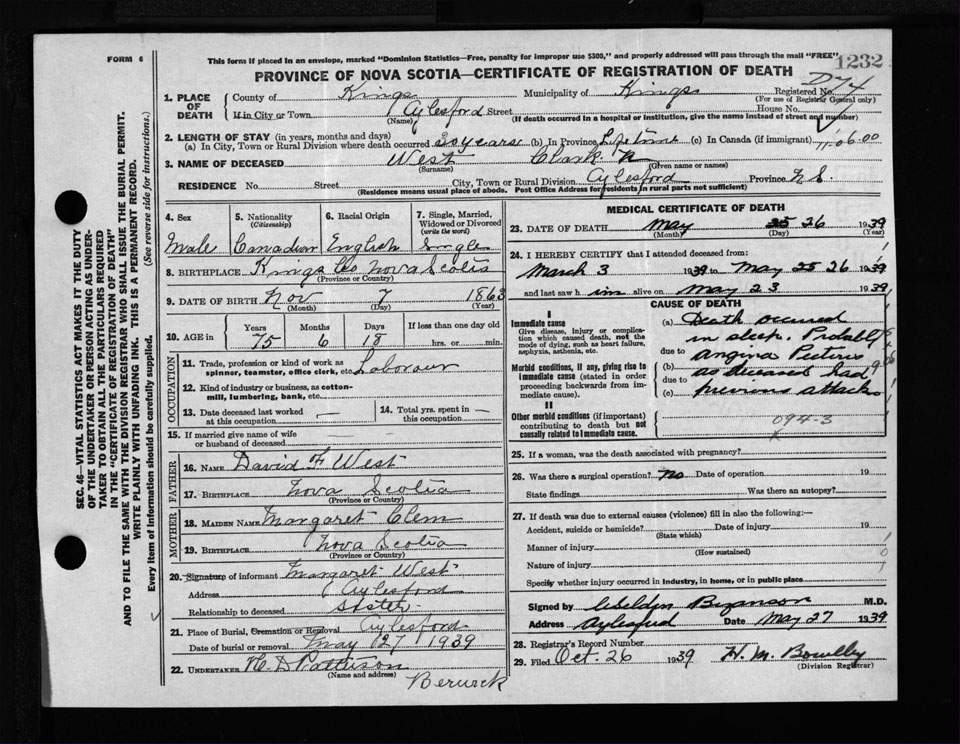 FORM 6
This form if placed in an envelope, marked "Dominion Statistics—Free, penalty for improper use $300," and properly addressed will pass through the mail "FREE"
1232
PROVINCE OF NOVA SCOTIA—CERTIFICATE OF REGISTRATION OF DEATH
D74
1. PLACE OF DEATH County of Kings Municipality of Kings Registered No.
(For use of Registrar General only)
If in City or Town Aylesford Street House No.
(Name) (If death occurred in a hospital or institution, give the name instead of street and number)
2. LENGTH OF STAY (in years, months and days)
(a) In City, Town or Rural Division where death occurred 30 years (b) In Province Life time (c) In Canada (if immigrant) 11.06.00
3. NAME OF DECEASED West Clark
(Surname) (Given name or names)
RESIDENCE No. Street City, Town or Rural Division Aylesford Province N S.
(Residence means usual place of abode. Post Office Address for residents in rural parts not sufficient)
4. Sex 5. Nationality (Citizenship) 6. Racial Origin 7. Single, Married, Widowed or Divorced (write the word)
Male Canadian English Single
8. BIRTHPLACE Kings Co Nova Scotia
(Province or Country)
9. DATE OF BIRTH Nov 7 1863
(Month) (Day) (Year)
10. AGE in Years Months Days If less than one day old
75 6 18 hrs. or min.
OCCUPATION
11. Trade, profession or kind of work as spinner, teamster, office clerk, etc. Labourer
12. Kind of industry or business, as cotton-mill, lumbering, bank, etc.
13. Date deceased last worked at this occupation — 14. Total yrs. spent in this occupation —
15. If married give name of wife or husband of deceased — — —
FATHER
16. NAME David F West
17. BIRTHPLACE Nova Scotia
(Province or Country)
MOTHER
18. MAIDEN NAME Margaret Clem
19. BIRTHPLACE Nova Scotia
(Province or Country)
20. Signature of informant Margaret West
Address Aylesford
Relationship to deceased Sister
21. Place of Burial, Cremation or Removal Aylesford
Date of burial or removal May 27 1939
22. UNDERTAKER D Patterson
(Name and address)
Berwick
MEDICAL CERTIFICATE OF DEATH
23. DATE OF DEATH May 25 26 1939
(Month) (Day) (Year)
24. I HEREBY CERTIFY that I attended deceased from:
March 3 1939 to May 25 26 1939
and last saw h im alive on May 23 1939
CAUSE OF DEATH
I
Immediate cause
Give disease, injury or complication which caused death, not the mode of dying, such as heart failure, asphyxia, asthenia, etc.
(a) Death occured in sleep. Probably
due to
Morbid conditions, if any, giving rise to immediate cause (stated in order proceeding backwards from immediate cause).
(b) Angina Pectoris as deceased had
due to
(c) previous attacks
II
Other morbid conditions (if important) contributing to death but not causally related to immediate cause.
094-3
25. If a woman, was the death associated with pregnancy?
26. Was there a surgical operation? No Date of operation 19
State findings Was there an autopsy?
27. If death was due to external causes (violence) fill in also the following:—
Accident, suicide or homicide? Date of injury 19
(State which)
Manner of injury
(How sustained)
Nature of injury
Specify whether injury occurred in industry, in home, or in public place
Signed by M.D.
Address Aylesford Date May 27 1939
28. Registrar's Record Number
29. Filed Oct. 26 1939 H. M. Bowlby
(Division Registrar)
SEC. 46—VITAL STATISTICS ACT MAKES IT THE DUTY
OF THE UNDERTAKER OR PERSON ACTING AS UNDER-
TAKER TO OBTAIN ALL THE PARTICULARS REQUIRED
IN THE "CERTIFICATE OF REGISTRATION OF DEATH"
AND TO FILE THE SAME WITH THE DIVISION REGISTRAR WHO SHALL ISSUE THE BURIAL PERMIT.
WRITE PLAINLY WITH UNFADING INK. THIS IS A PERMANENT RECORD.
Every item of Information should be carefully supplied. (See reverse side for instructions.)